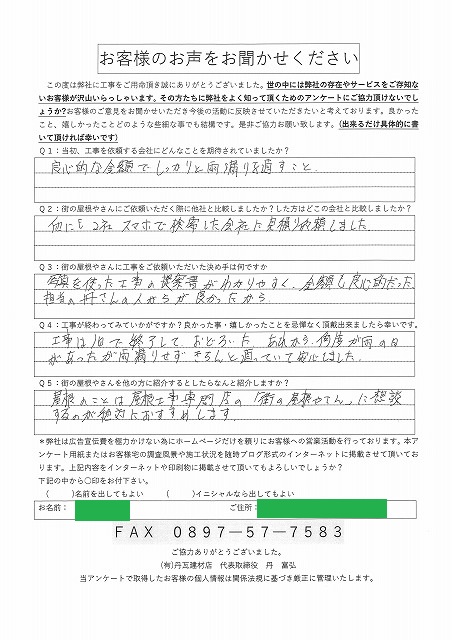 お客様のお声をお聞かせください
この度は弊社に工事をご用命頂き誠にありがとうございました。世の中には弊社の存在やサービスをご存知な
いお客様が沢山いらっしゃいます。その方たちに弊社をよく知って頂くためのアンケートにご協力頂けないでし
ょうか?お客様のご意見をお聞かせいただき今後の活動に反映させていただきたいと考えております。良かった
こと、嬉しかったことどのような些細な事でも結構です。是非ご協力お願い致します。(出来るだけ具体的に書
いて頂ければ幸いです)
Q1:当初、工事を依頼する会社にどんなことを期待されていましたか?
良心的な金額でしっかりと雨漏りを直すこと.
Q2:街の屋根やさんにご依頼いただく際に他社と比較しましたか?した方はどこの会社と比較しましたか?
他にも2社 スマホで検索した会社に見積り依頼しました
Q3:街の屋根やさんに工事をご依頼いただいた決め手は何ですか
写真を使った工事の提案書がわかりやすく、金額も良心的だった
担当の丹さんの人がらが良かったから.
Q4:工事が終わってみていかがですか?良かった事・嬉しかったことを忌憚なく頂戴出来ましたら幸いです。
工事は1日で終了して、おどろいた、あれから、何度か雨の日
があったが雨漏りせず きちんと直っていて安心しました.
Q5:街の屋根やさんを他の方に紹介するとしたらなんと紹介しますか?
屋根のことは屋根工事専門店の「街の屋根やさん」に相談
するのが絶対におすすめします.
*弊社は広告宣伝費を極力かけない為にホームページだけを頼りにお客様への営業活動を行っております。本ア
ンケート用紙またはお客様宅の調査風景や施工状況を随時ブログ形式のインターネットに掲載させて頂いてお
ります。上記内容をインターネットや印刷物に掲載させて頂いてもよろしいでしょうか?
下記の中から〇印をお付下さい。
( )名前を出してもよい ( )イニシャルなら出してもよい
お名前: ご住所:
FAX 0897-57-7583
ご協力ありがとうございました。
(有)丹瓦建材店 代表取締役 丹 富弘
当アンケートで取得したお客様の個人情報は関係法規に基づき厳正に管理いたします。